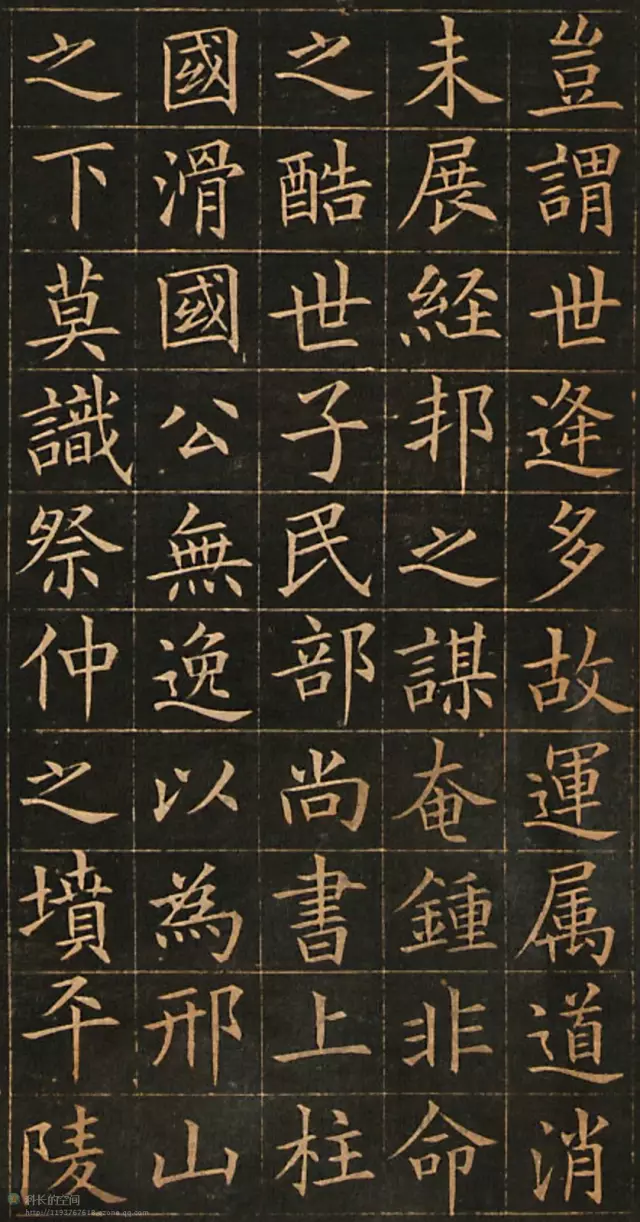 豈謂世逄多故運属道消
未展経邦之謀奄鍾非命
之酷世子民部尚書上柱
國滑國公無逸以為邢山
之下莫識祭仲之墳平陵
科长的空间